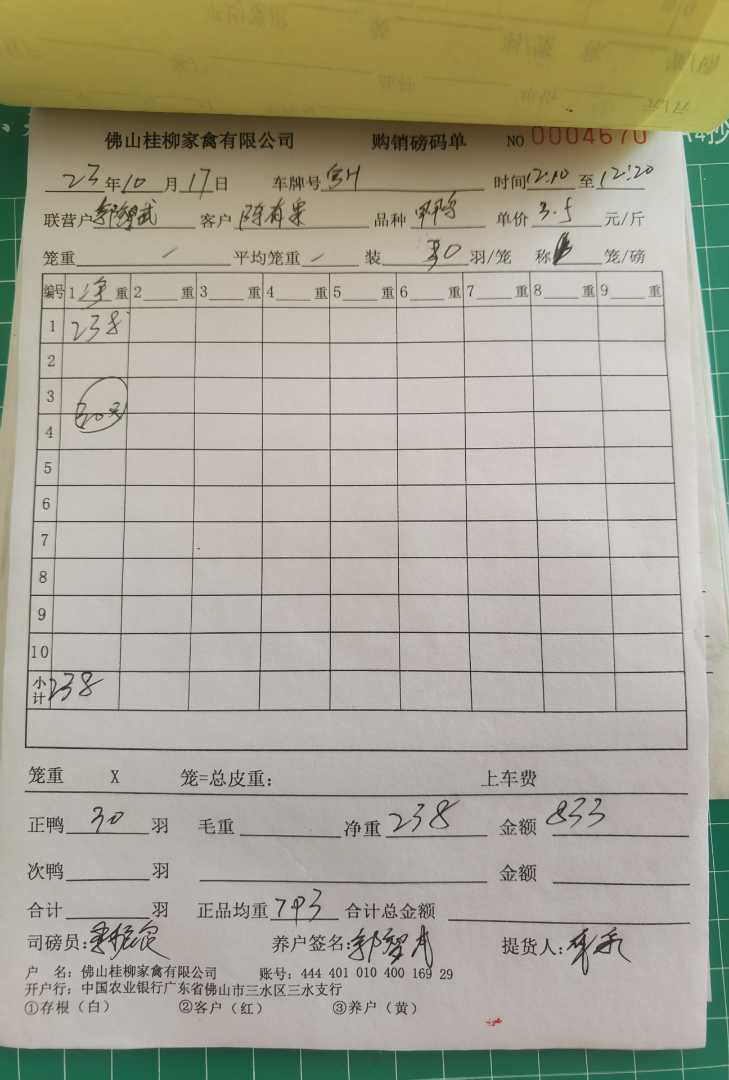 佛山桂柳家禽有限公司 购销磅码单 NO 0004670
23年10月17日 车牌号 时间12:10至12:20
联营户 客户 品种 单价3.5元/斤
笼重 平均笼重 装30羽/笼 称 笼/磅
编号 1净重 2 重 3 重 4 重 5 重 6 重 7 重 8 重 9 重
1 238
2
3
30
4
5
6
7
8
9
10
小计 238
笼重 X 笼=总皮重: 上车费
正鸭30羽 毛重 净重238 金额833
次鸭 羽 金额
合计 羽 正品均重793 合计总金额
司磅员: 养户签名: 提货人:
户 名:佛山桂柳家禽有限公司 账号:444 401 010 400 169 29
开户行:中国农业银行广东省佛山市三水区三水支行
①存根(白) ②客户(红) ③养户(黄)